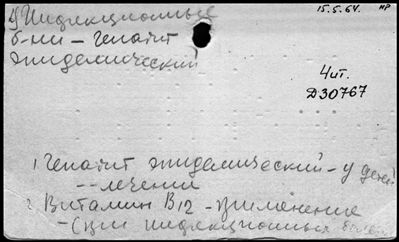 15.5.64. НР
Инфекционные
б-ни – гепатит
эпидемический
Чит.
Д30767
1 Гепатит эпидемический – у детей
-- лечении
2 Витамин В12 – применение
– при инфекционных